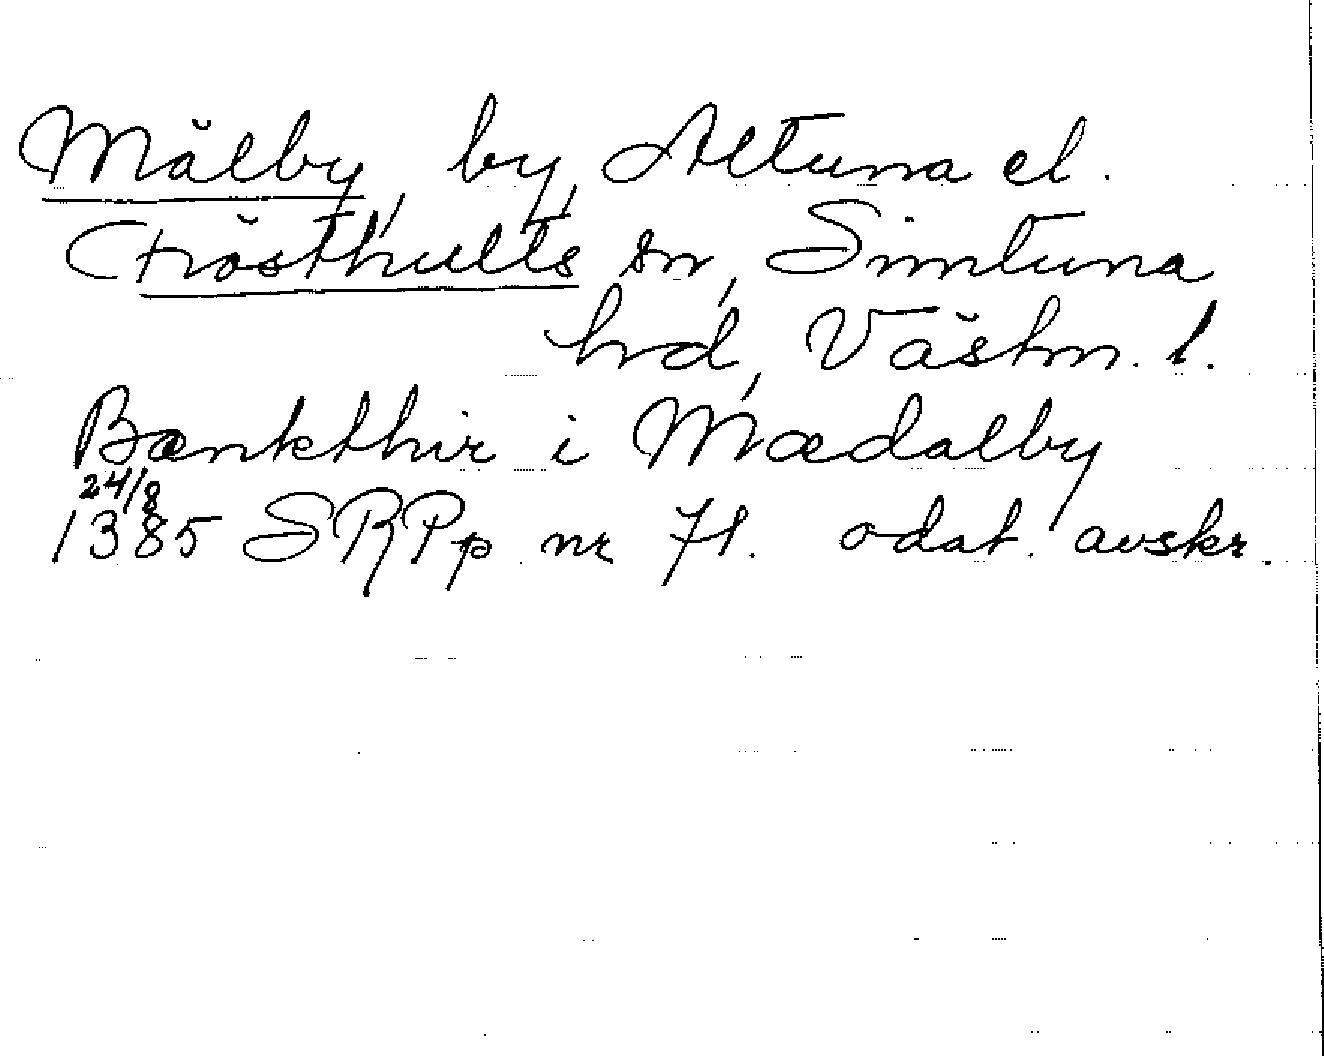 Mälby, by, Altuna el.
Frösthults sn, Simtuna
hrd, Västm. l.
Bænkthir i Mædalby
24/8
1385 SRPp nr 71. odat. avskr.